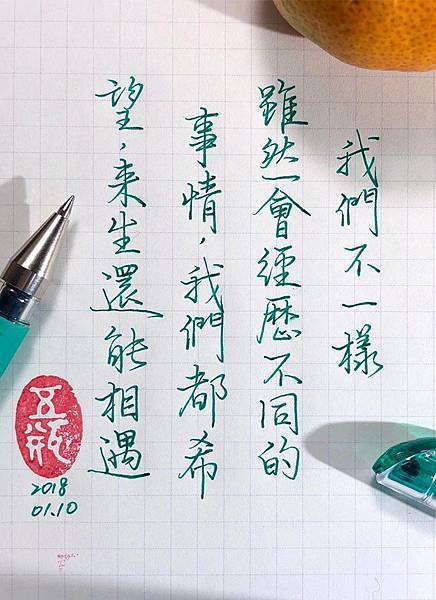 我們不一樣
雖然會經歷不同的
事情,我們都希
望,来生還能相遇
五瓶
2018
01.10